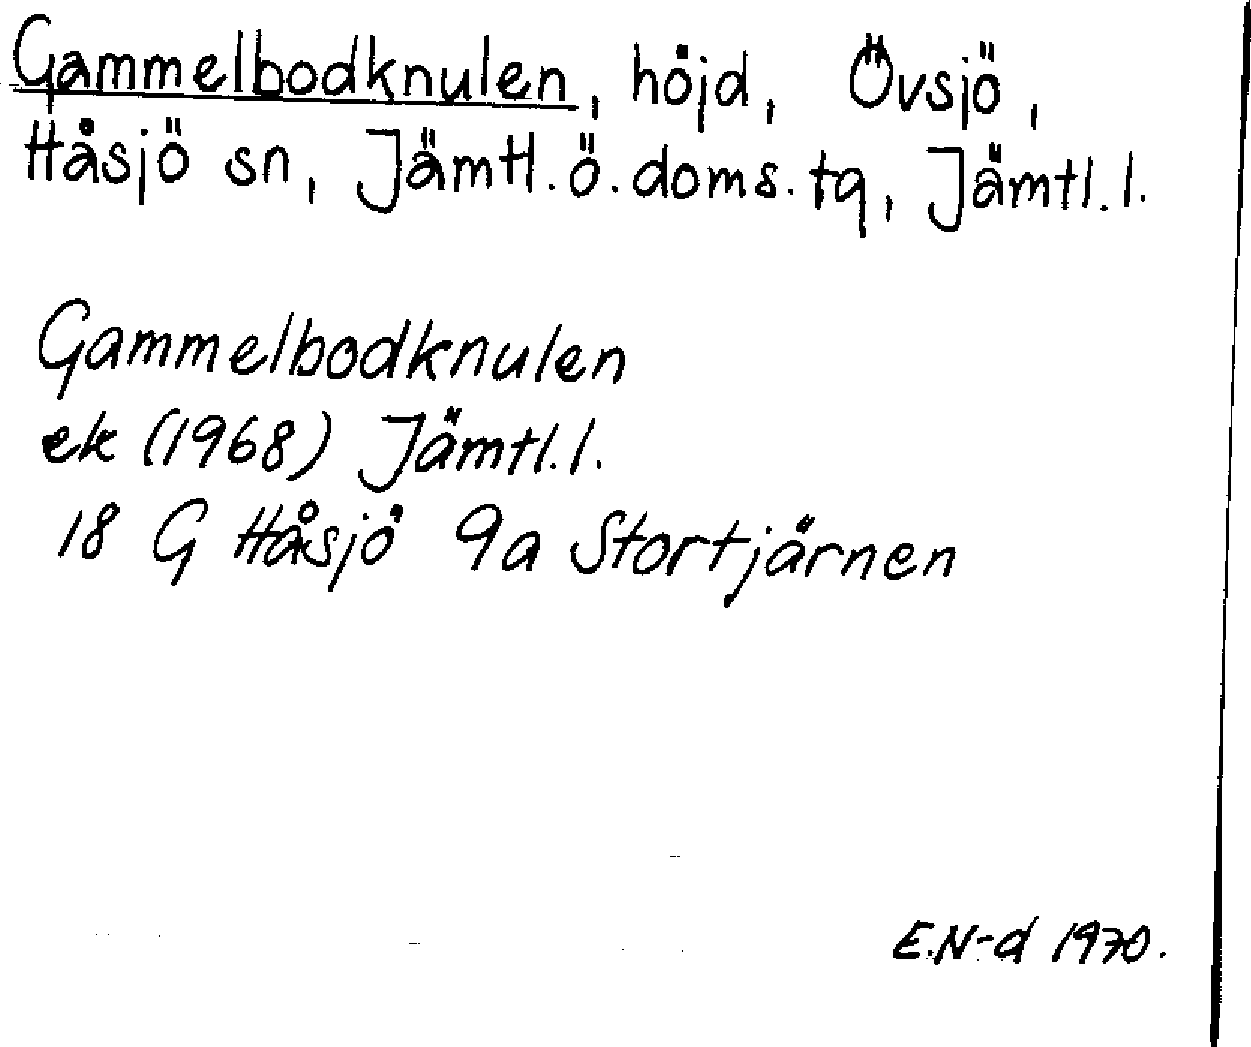 Gammelbodknulen, höjd, Övsjö,
Håsjö sn, Jämtl.ö.doms.tg, Jämtl.l.
Gammelbodknulen
ek (1968) Jämtl.l.
18 G Håsjö 9a Stortjärnen
E.N-d 1970.